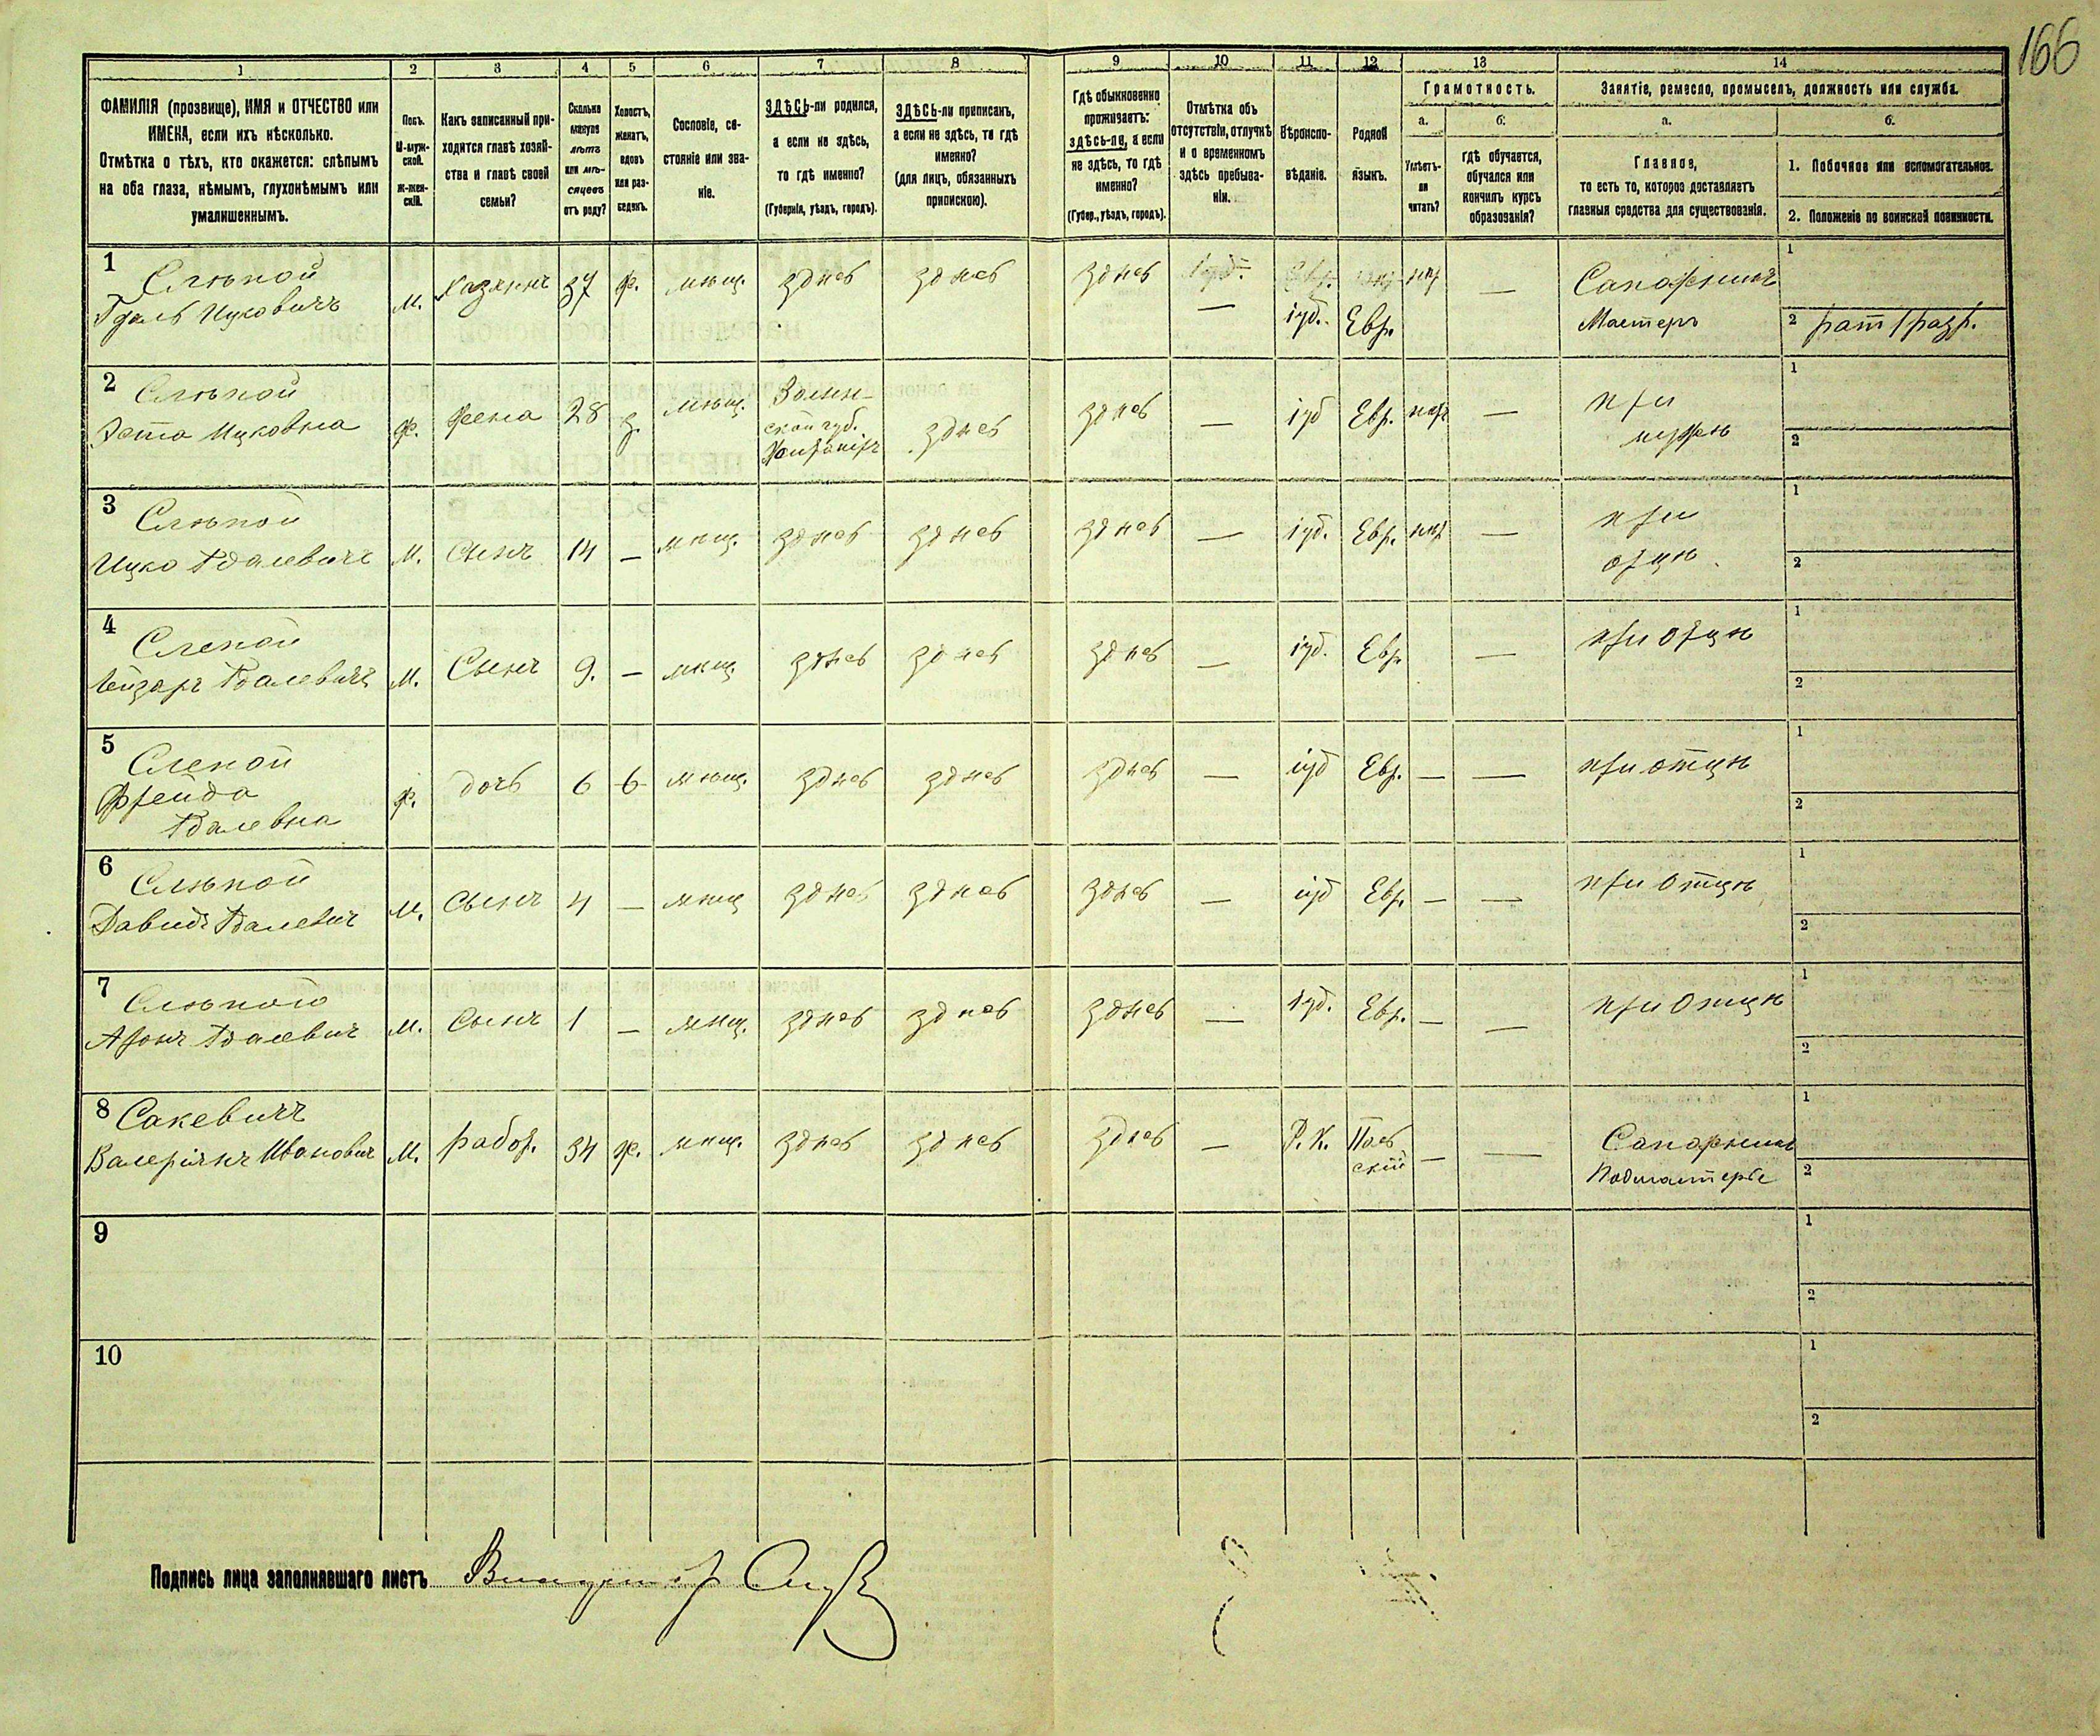 166
1 2 3 4 5 6 7 8 9 10 11 12 13 14
ФАМИЛІЯ (прозвище), ИМЯ и ОТЧЕСТВО или
ИМЕНА, если ихъ нѣсколько.
Отмѣтка о тѣхъ, кто окажется: слѣпымъ
на оба глаза, нѣмымъ, глухонѣмымъ или
умалишеннымъ.
Полъ.
М-муж-
ской.
ж-жен-
скій.
Какъ записанный при-
ходится главѣ хозяй-
ства и главѣ своей
семьи?
Сколько
минуло
лѣтъ
или мѣ-
сяцевъ
отъ роду?
Холостъ,
женатъ,
вдовъ
или раз-
веденъ.
Сословіе, со-
стояніе или зва-
ніе.
ЗДѢСЬ-ли родился,
а если не здѣсь,
то гдѣ именно?
(Губернія, уѣздъ, городъ).
ЗДѢСЬ-ли приписанъ,
а если не здѣсь, то гдѣ
именно?
(для лицъ, обязанныхъ
припискою).
Гдѣ обыкновенно
проживаетъ:
здѣсь-ли, а если
не здѣсь, то гдѣ
именно?
(Губер., уѣздъ, городъ).
Отмѣтка объ
отсутствіи, отлучкѣ
и о временномъ
здѣсь пребыва-
ніи.
Вѣроиспо-
вѣданіе.
Родной
языкъ.
Грамотность.
а.
Умѣетъ-
ли
читать?
б.
гдѣ обучается,
обучался или
кончилъ курсъ
образованія?
Занятіе, ремесло, промыселъ, должность или служба.
а.
Главное,
то есть то, которое доставляетъ
главныя средства для существованія.
б.
1. Побочное или вспомогательное.
2. Положеніе по воинской повинности.
1 Слѣпой
Гдаль Ицковичъ м. хазяинъ 37 ж. мѣщ. здѣсь здѣсь здѣсь — іуд. Евр. — Сапожникъ
Мастеръ
1
2 рат 1 разр.
2 Слѣпой
Эста Ицковна ж. жена 28 з. мѣщ. Волын-
ской губ.
здѣсь здѣсь — іуд Евр. — при
мужѣ
1
2
3 Слѣпой
Ицко Гдалевичъ м. сынъ 14 — мѣщ. здѣсь здѣсь здѣсь — іуд. Евр. — при
отцѣ
1
2
4 Слепой
Лейзаръ Гдалевичъ м. Сынъ 9. — мѣщ. здѣсь здѣсь здѣсь — іуд. Евр — при отцѣ
1
2
5 Слепой
Фрейда
Гдалевна ж. дочь 6 мѣщ. здѣсь здѣсь здѣсь — іуд Евр. — — при отцѣ
1
2
6 Слѣпой
Давидъ Гдалевич м. сынъ 4 — мѣщ здѣсь здѣсь здѣсь — іуд Евр. — — при отцѣ
1
2
7 Слѣпой
Аронъ Гдалевич м. Сынъ 1 — мѣщ. здѣсь здѣсь здѣсь — іуд. Евр. — — при отцѣ
1
2
8 Сакевичъ
Валеріянъ Ивановичъ м. работ. 34 ж. мѣщ. здѣсь здѣсь здѣсь — Р. К. Поль
скій — — Сапожникъ
Подмастерье
1
2
9
1
2
10
1
2
Подпись лица заполнявшаго листъ